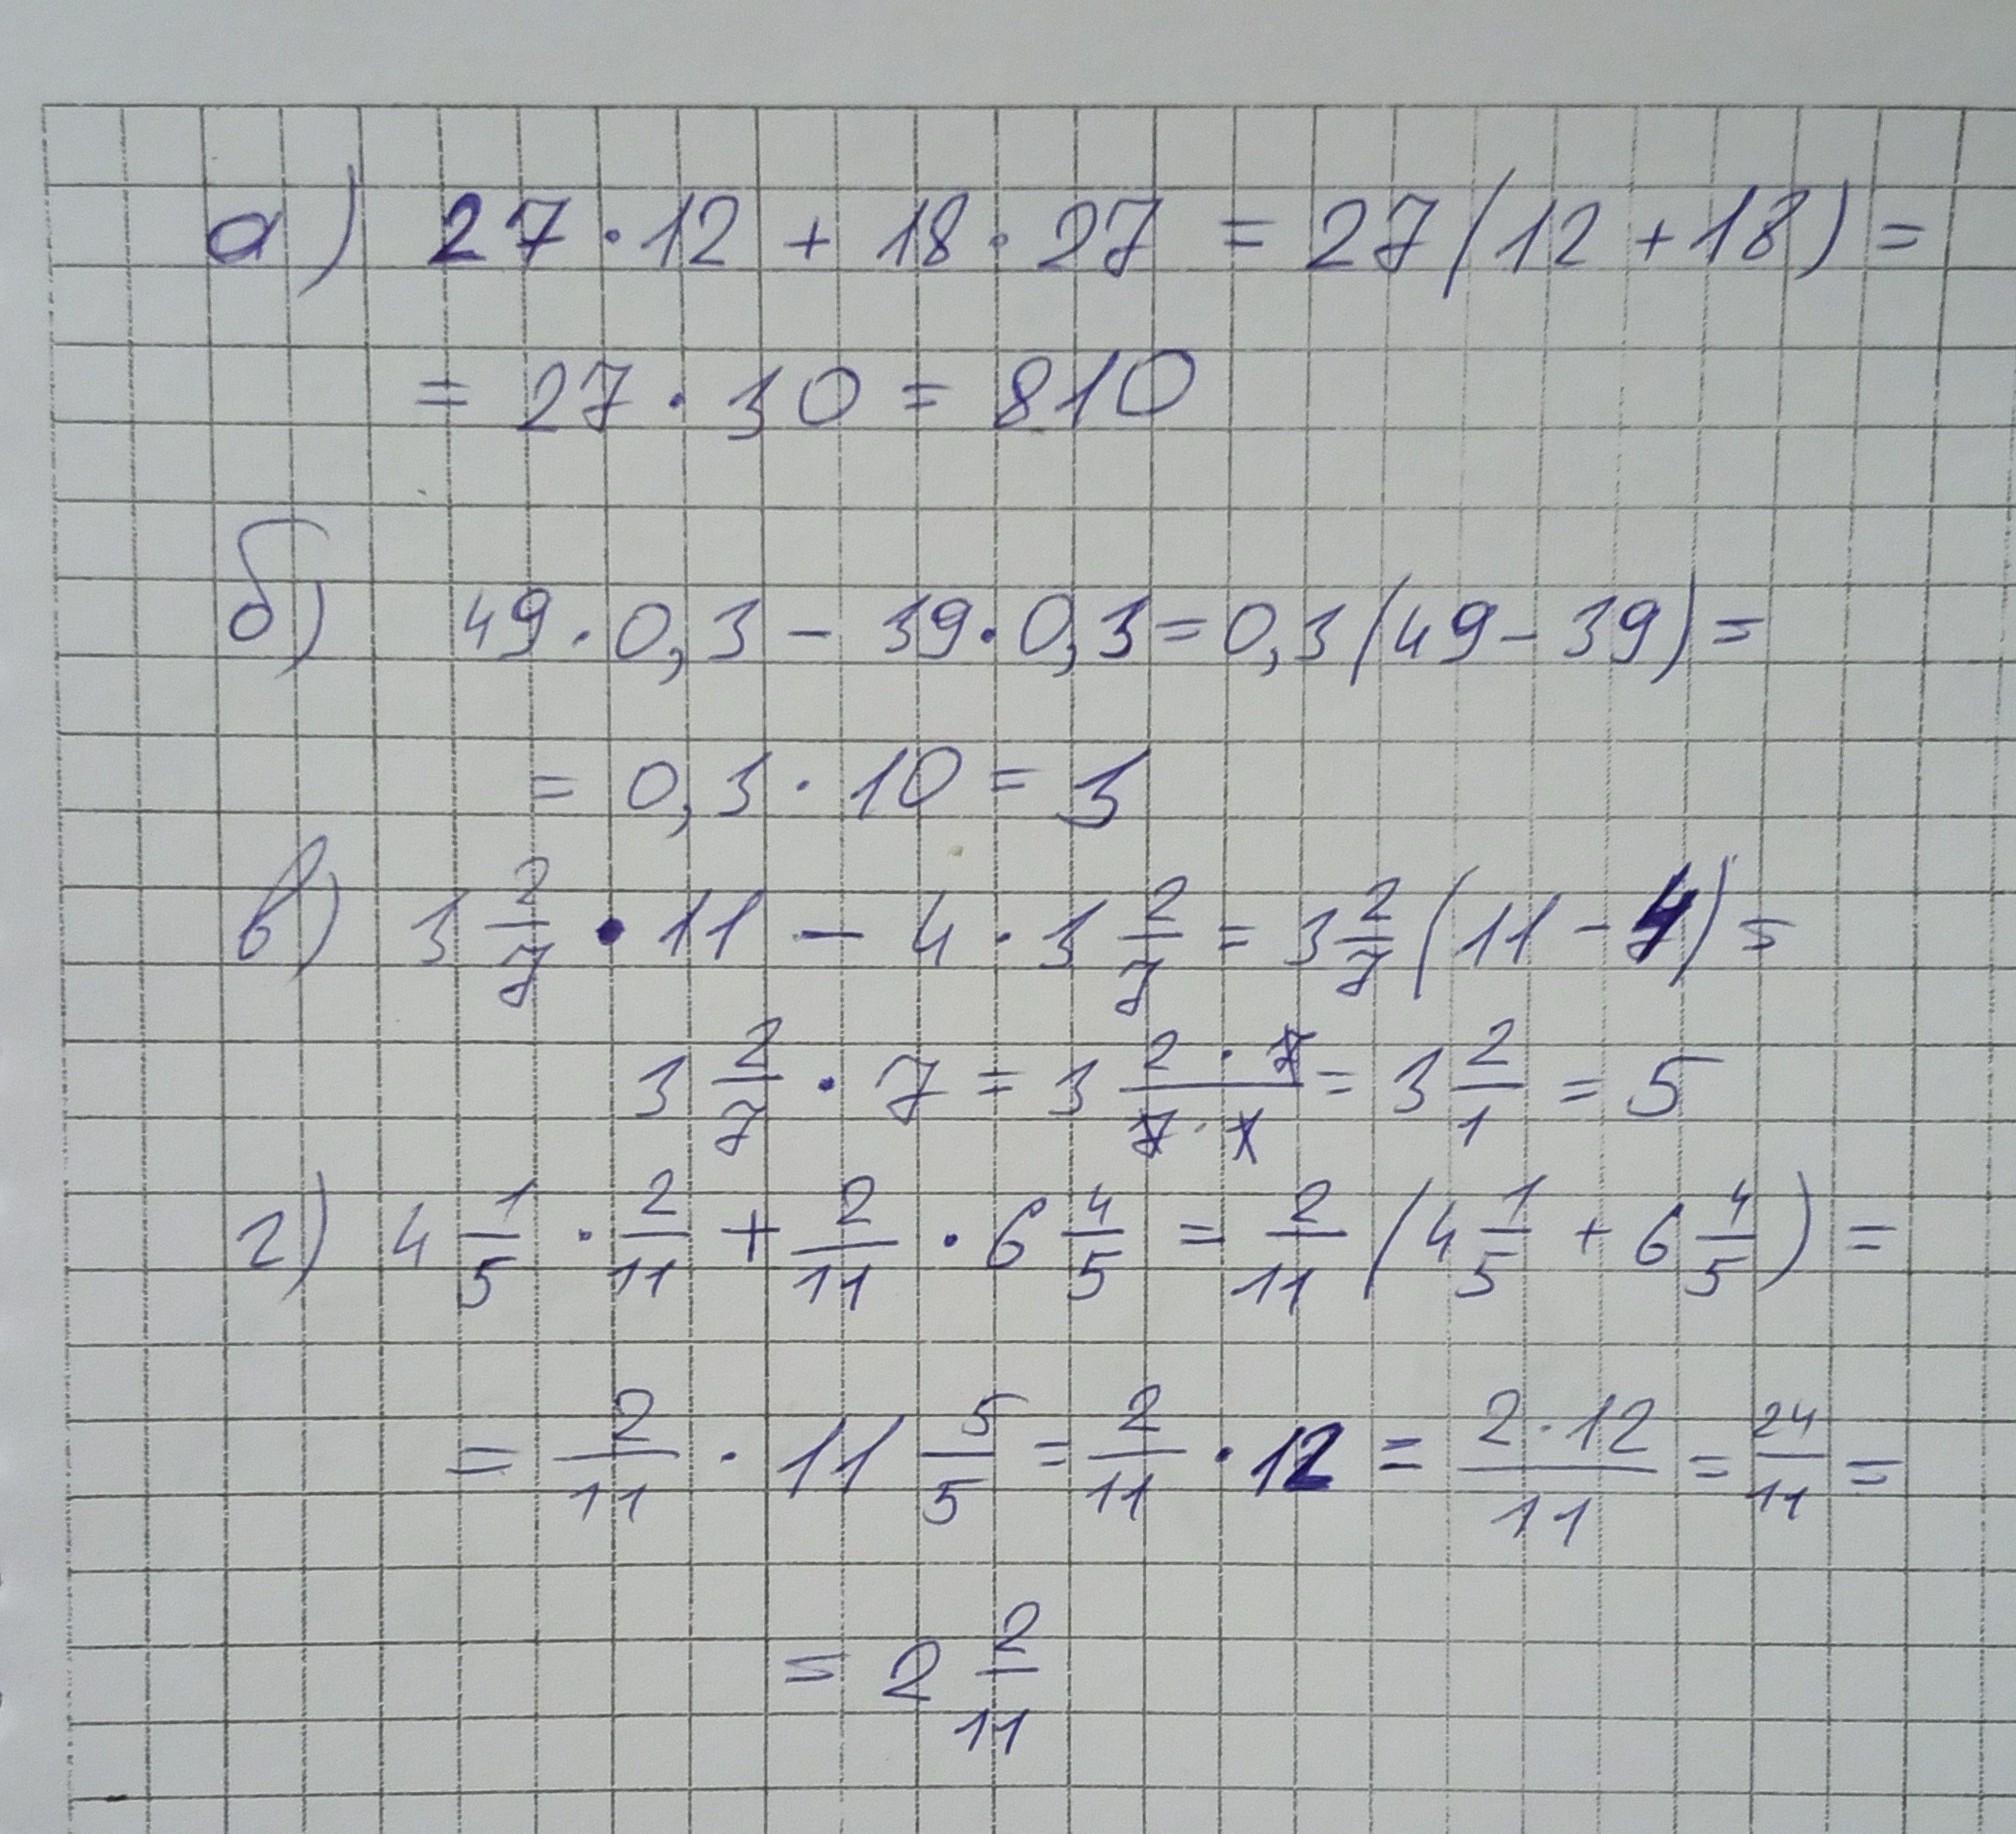 а) 27·12 + 18·27 = 27(12+18) =
= 27·30 = 810
б) 49·0,3 − 39·0,3 = 0,3(49−39) =
= 0,3·10 = 3
в) 3 2/7 · 11 − 4 · 3 2/7 = 3 2/7 (11−4) =
3 2/7 · 7 = 3 2·7/7·1 = 3 2/1 = 5
г) 4 1/5 · 2/11 + 2/11 · 6 4/5 = 2/11 (4 1/5 + 6 4/5) =
= 2/11 · 11 5/5 = 2/11 · 12 = 2·12/11 = 24/11 =
= 2 2/11